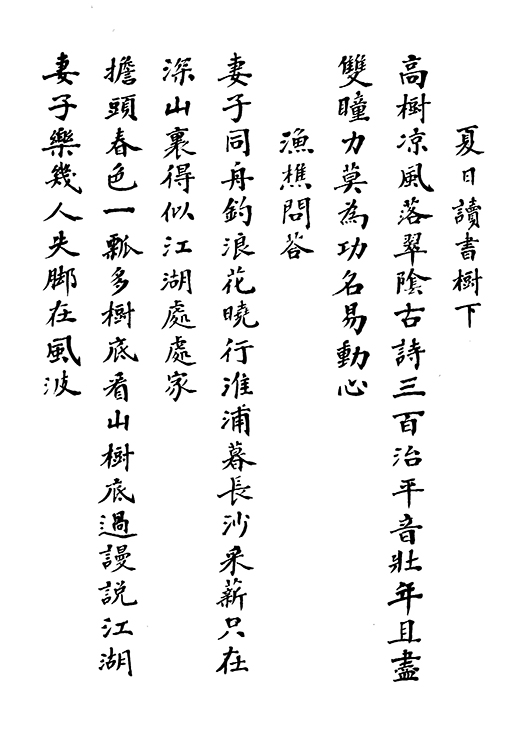 夏日讀書樹下
高樹凉風落翠陰古詩三百治平音壯年且盡
雙瞳力莫為功名易動心
漁樵問荅
妻子同舟釣浪花曉行淮浦暮長沙采薪只在
深山裏得似江湖處處家
擔頭春色一瓢多樹底看山樹底過謾説江湖
妻子樂幾人失脚在風波